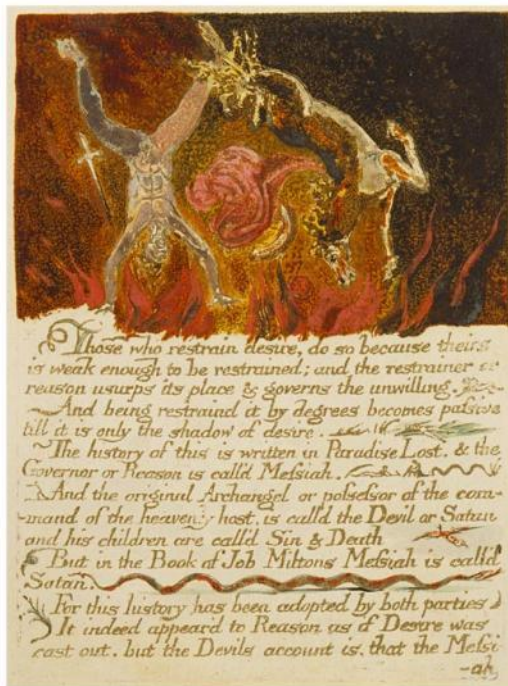 Those who restrain desire, do so because theirs
is weak enough to be restrained; and the restrainer or
reason usurps its place & governs the unwilling.
And being restraind it by degrees becomes passive
till it is only the shadow of desire.
The history of this is written in Paradise Lost. & the
Governor or Reason is call'd Messiah.
And the original Archangel or possessor of the com-
-mand of the heavenly host, is calld the Devil or Satan
and his children are call'd Sin & Death
But in the Book of Job Miltons Messiah is call'd
Satan.
For this history has been adopted by both parties
It indeed appear'd to Reason as if Desire was
cast out. but the Devils account is, that the Messi-
-ah